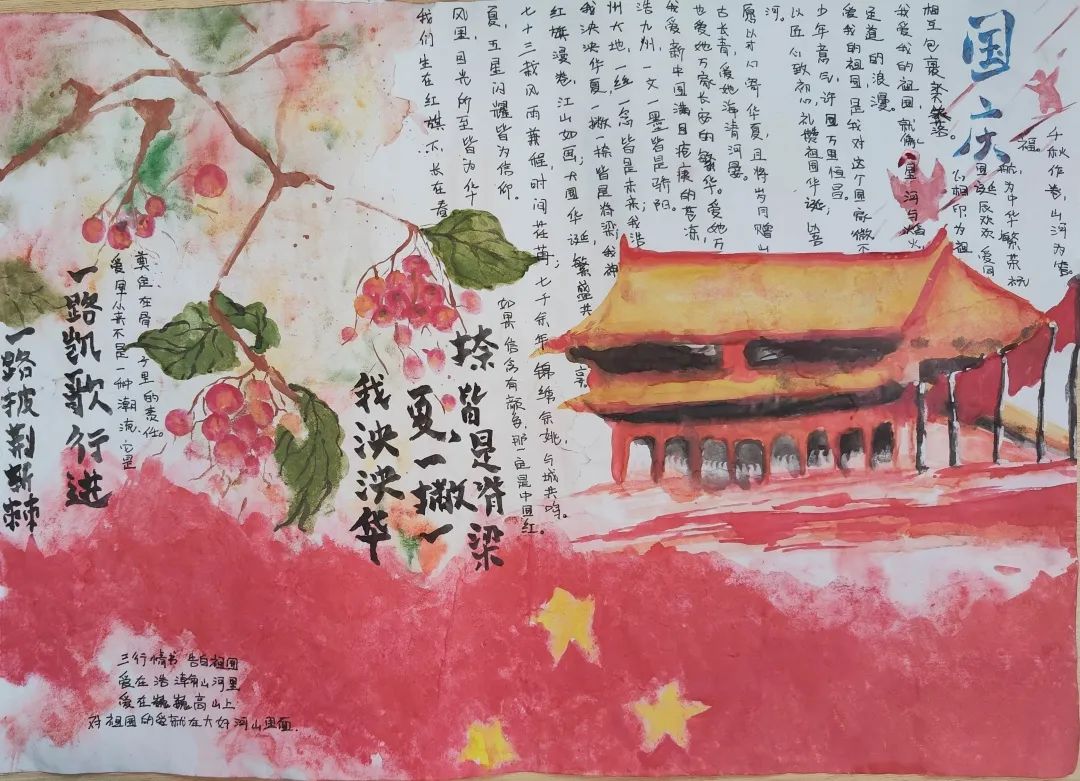 国庆
千秋作卷,山河为答。
祝为中华繁荣祝
福。
国诞辰欢欢,爱国
心相印为祖
相互包裹,美
我爱我的祖国,就像星河与烟火
足道的浪漫。
爱我的祖国是我对这个国家微不
少年意气,许国万里恒昌。
以匠心致初心,礼赞祖国华诞,皆
河。
愿以寸心寄华夏,且将岁月赠山
古长青,爱她海清河晏。
也爱她万家长安的繁华。爱她万
我爱新中国满目疮痍的苍凉,
浩九州,一文一墨皆是骄阳。
州大地,一丝一念皆是未来;我浩
我泱泱华夏,一撇一捺皆是脊梁;我神
红旗漫卷,江山如画;大国华诞,繁盛共享
七十三载风雨兼程,时间荏苒;七千余年锦绣余姚,与城共鸣。
夏,五星闪耀皆为信仰
如果信念有颜色,那一定是中国红。
风里,目光所至皆为华
我们生在红旗下,长在春
捺皆是脊梁
夏,一撇一
我泱泱华
奠定在骨子里的责任。
爱国从来不是一种潮流,它是
一路凯歌行进
一路披荆斩棘
三行情书 告白祖国
爱在浩瀚山河里
爱在巍巍高山上
对祖国的爱献在大好河山里面.